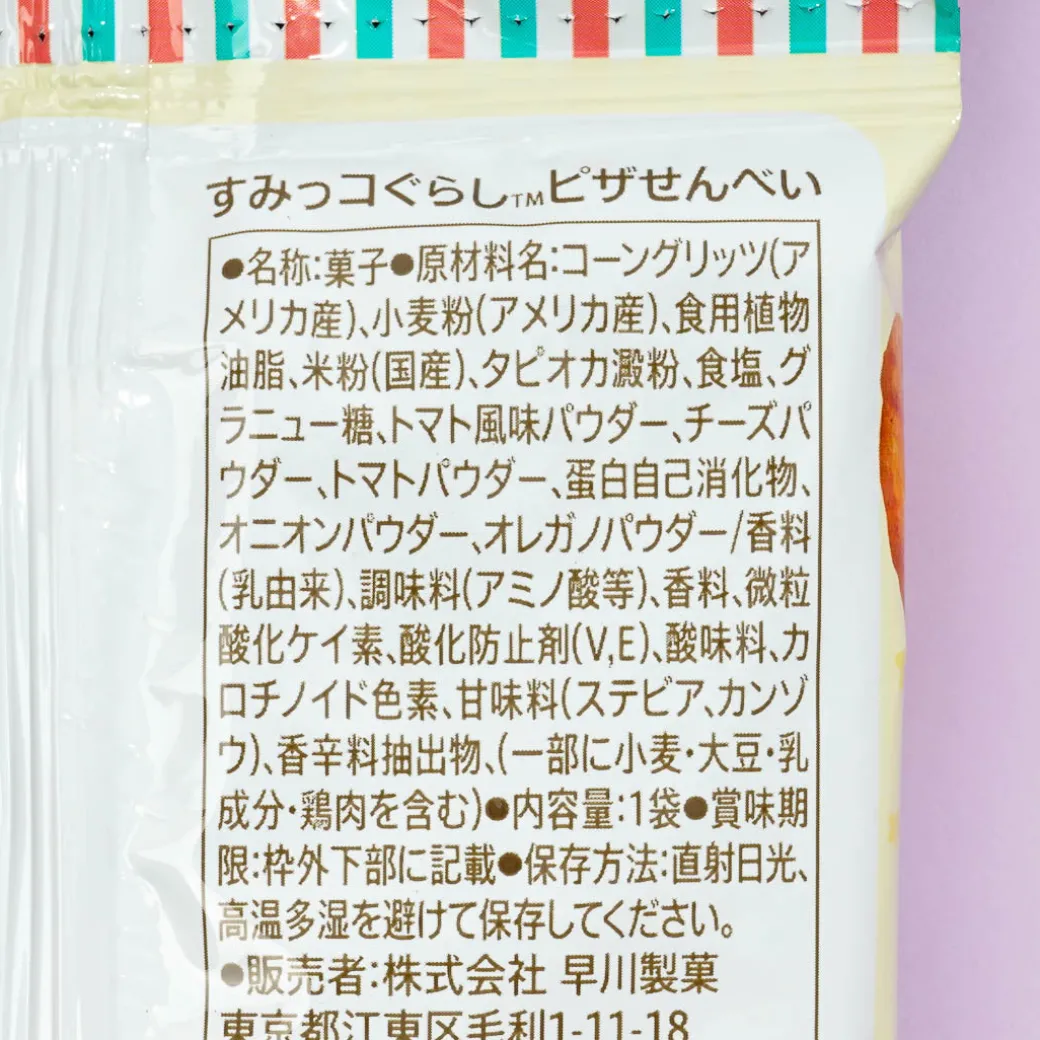 すみっコぐらし™ピザせんべい
●名称:菓子●原材料名:コーングリッツ(ア
メリカ産)、小麦粉(アメリカ産)、食用植物
油脂、米粉(国産)、タピオカ澱粉、食塩、グ
ラニュー糖、トマト風味パウダー、チーズパ
ウダー、トマトパウダー、蛋白自己消化物、
オニオンパウダー、オレガノパウダー/香料
(乳由来)、調味料(アミノ酸等)、香料、微粒
酸化ケイ素、酸化防止剤(V,E)、酸味料、カ
ロチノイド色素、甘味料(ステビア、カンゾ
ウ)、香辛料抽出物、(一部に小麦・大豆・乳
成分・鶏肉を含む)●内容量:1袋●賞味期
限:枠外下部に記載●保存方法:直射日光、
高温多湿を避けて保存してください。
●販売者:株式会社 早川製菓
東京都江東区毛利1-11-18